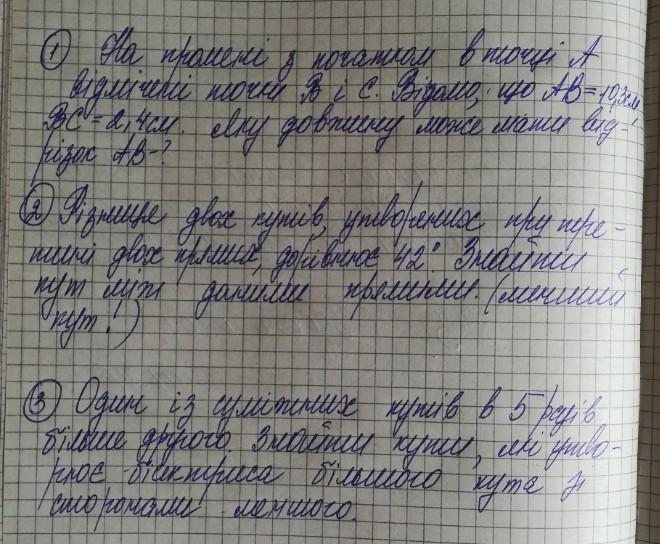 ① На промені з початком в точці А
відмічені точки В і С. Відомо, що АВ = 10,3см,
ВС = 2,4см. Яку довжину може мати від-
різок АВ-?
② Різниця двох кутів, утворених при пере-
тині двох прямих, дорівнює 42°. Знайти
кут між даними прямими. (менший
кут!)
③ Один із суміжних кутів в 5 разів
більше другого. Знайти кути, які утво-
рює бісектриса більшого кута зі
сторонами меншого.